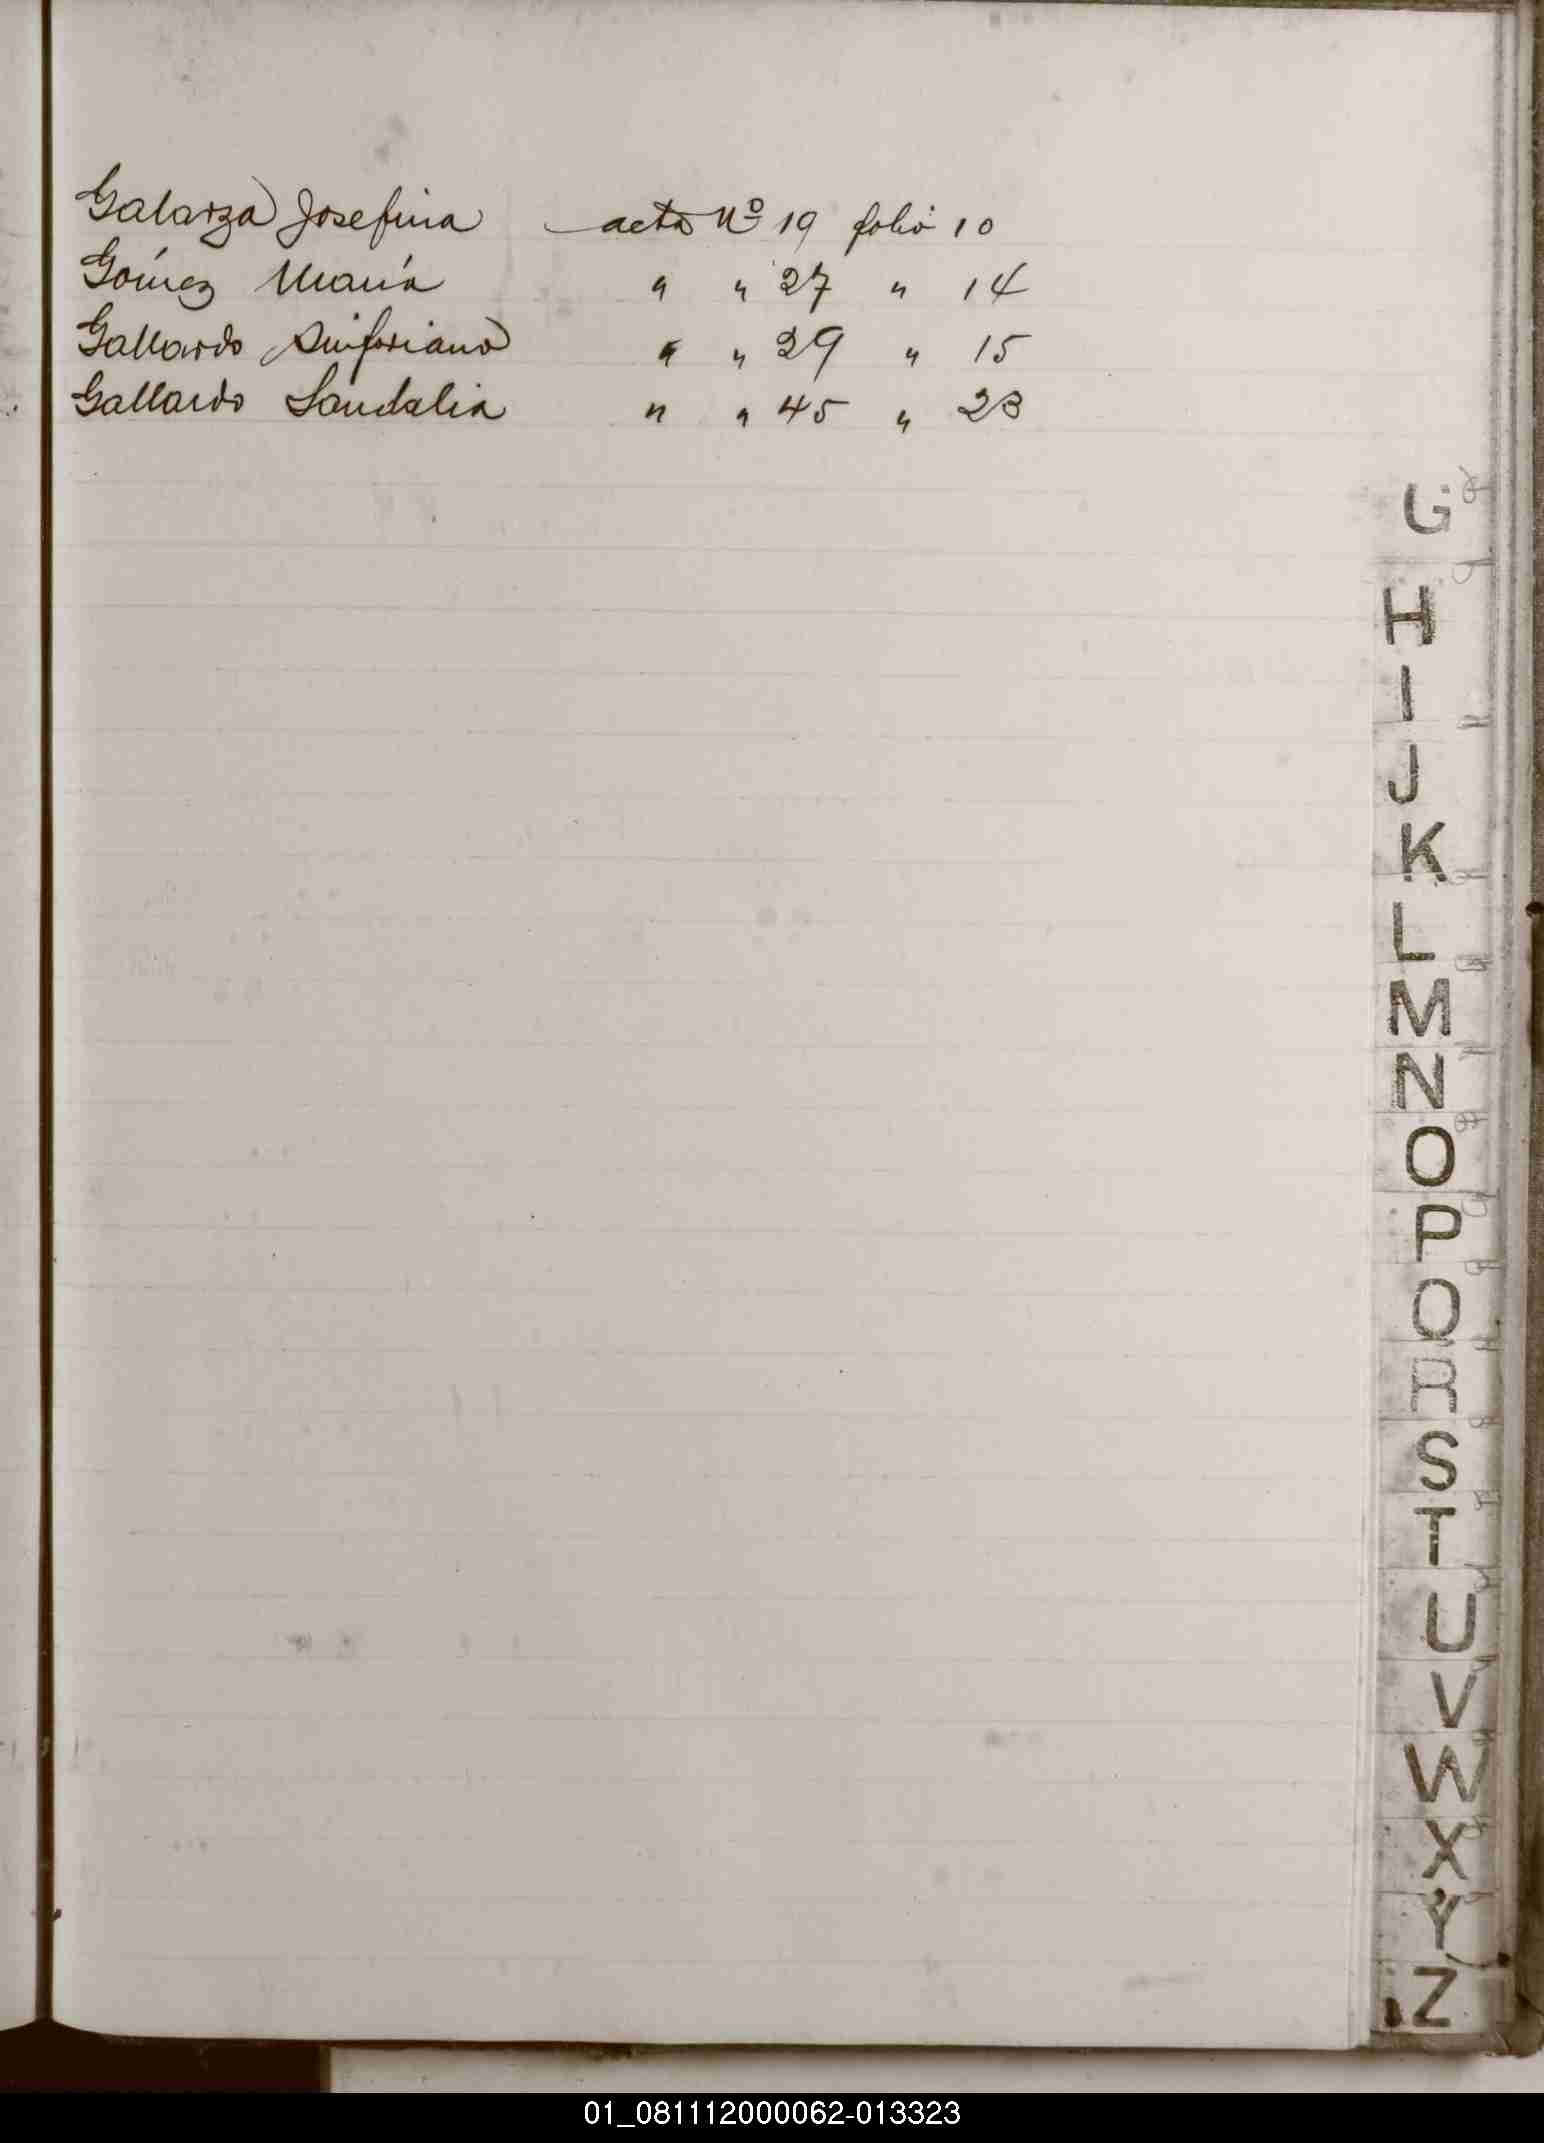 Galarza Josefina acta Nº 19 folio 10
Gómez María " " 27 " 14
Gallardo Sinforiano " " 29 " 15
Gallardo Sandalia " " 45 " 23
G
H
I
J
K
L
M
N
O
P
Q
R
S
T
U
V
W
X
Y
Z
01_081112000062-013323